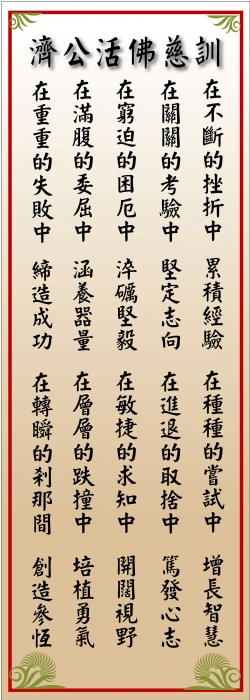 濟公活佛慈訓
在不斷的挫折中　累積經驗　在種種的嘗試中　增長智慧
在關關的考驗中　堅定志向　在進退的取捨中　篤發心志
在窮迫的困厄中　淬礪堅毅　在敏捷的求知中　開闊視野
在滿腹的委屈中　涵養器量　在層層的跌撞中　培植勇氣
在重重的失敗中　締造成功　在轉瞬的剎那間　創造參恆